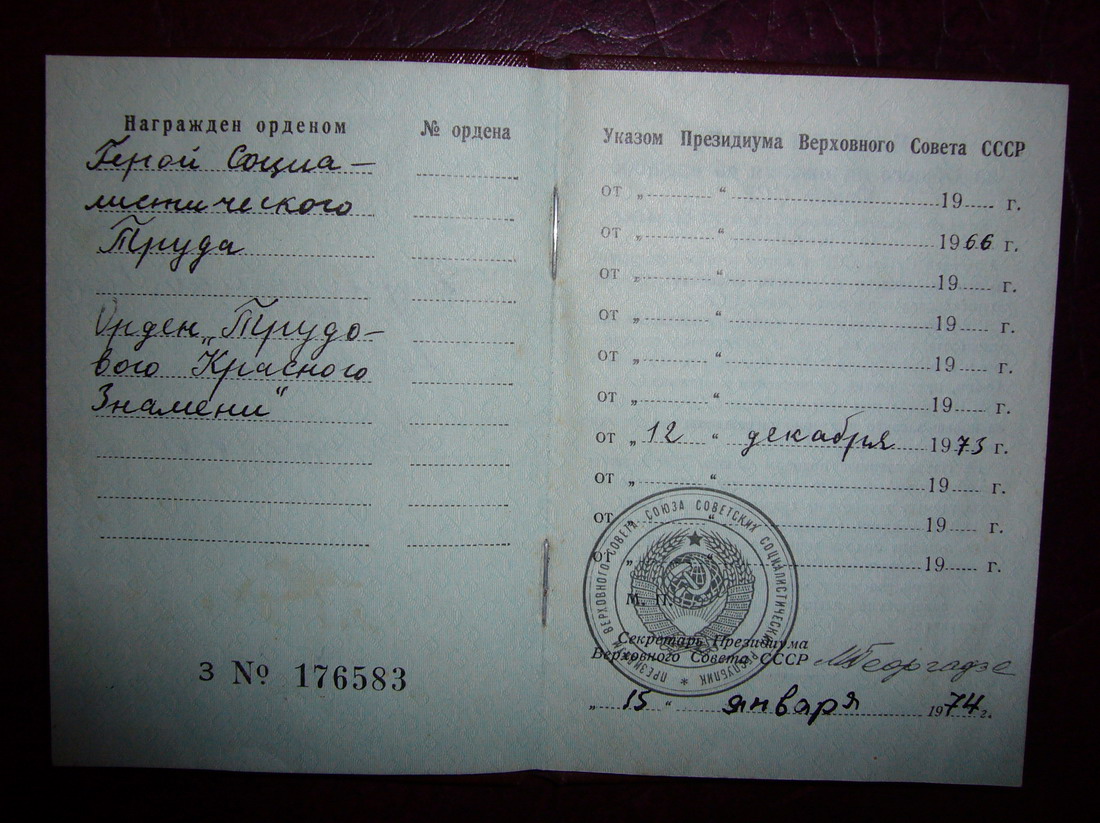 Награжден орденом
№ ордена
Герой Социа-
листического
Труда
Орден „Трудо-
вого Красного
Знамени"
З № 176583
Указом Президиума Верховного Совета СССР
от „ “ 19 г.
от „ “ 1966 г.
от „ “ 19 г.
от „ “ 19 г.
от „ “ 19 г.
от „ “ 19 г.
от „ 12 “ декабря 1973 г.
от „ “ 19 г.
от „ “ 19 г.
от „ “ 19 г.
ПРЕЗИДИУМ ВЕРХОВНОГО СОВЕТА СОЮЗА СОВЕТСКИХ СОЦИАЛИСТИЧЕСКИХ РЕСПУБЛИК *
М. П.
Секретарь Президиума
Верховного Совета СССР МГеоргадзе
„ 15 “ января 1974 г.